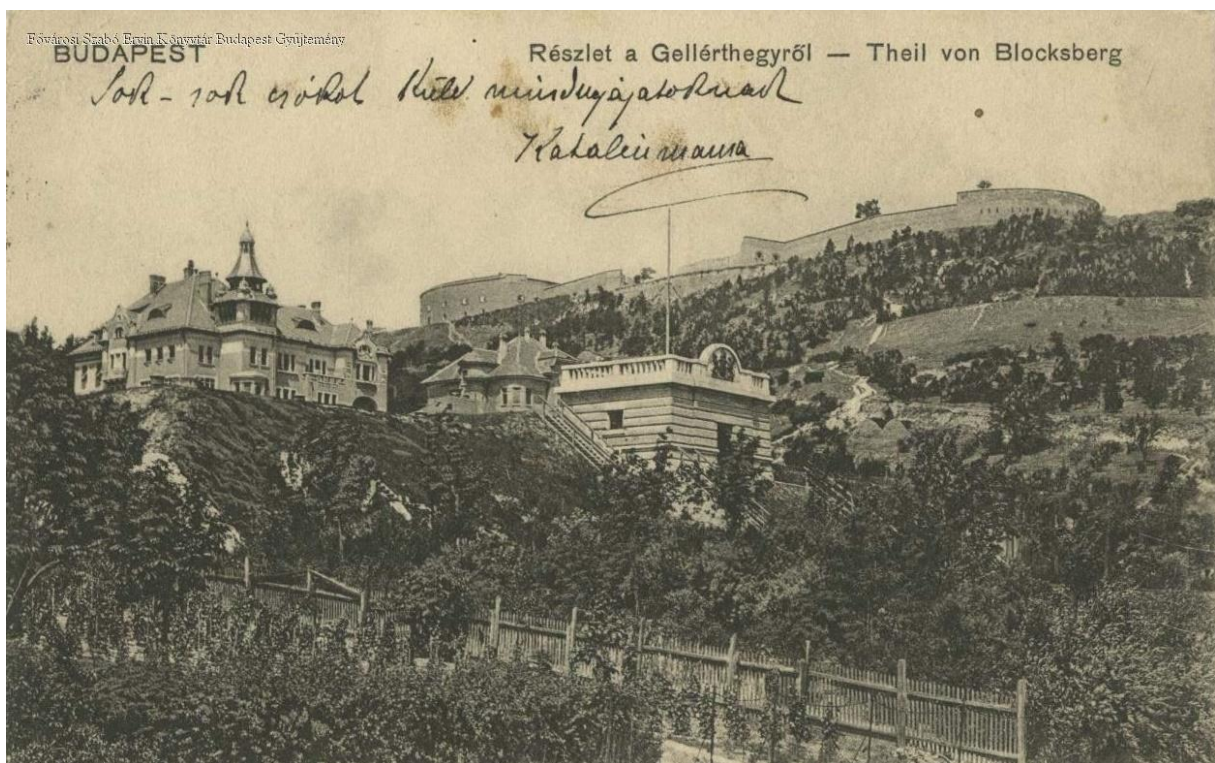 Fővárosi Szabó Ervin Könyvtár Budapest Gyűjtemény
BUDAPEST
Részlet a Gellérthegyről — Theil von Blocksberg
Sok - sok csókot küld mindnyájatoknak
Katalin mama